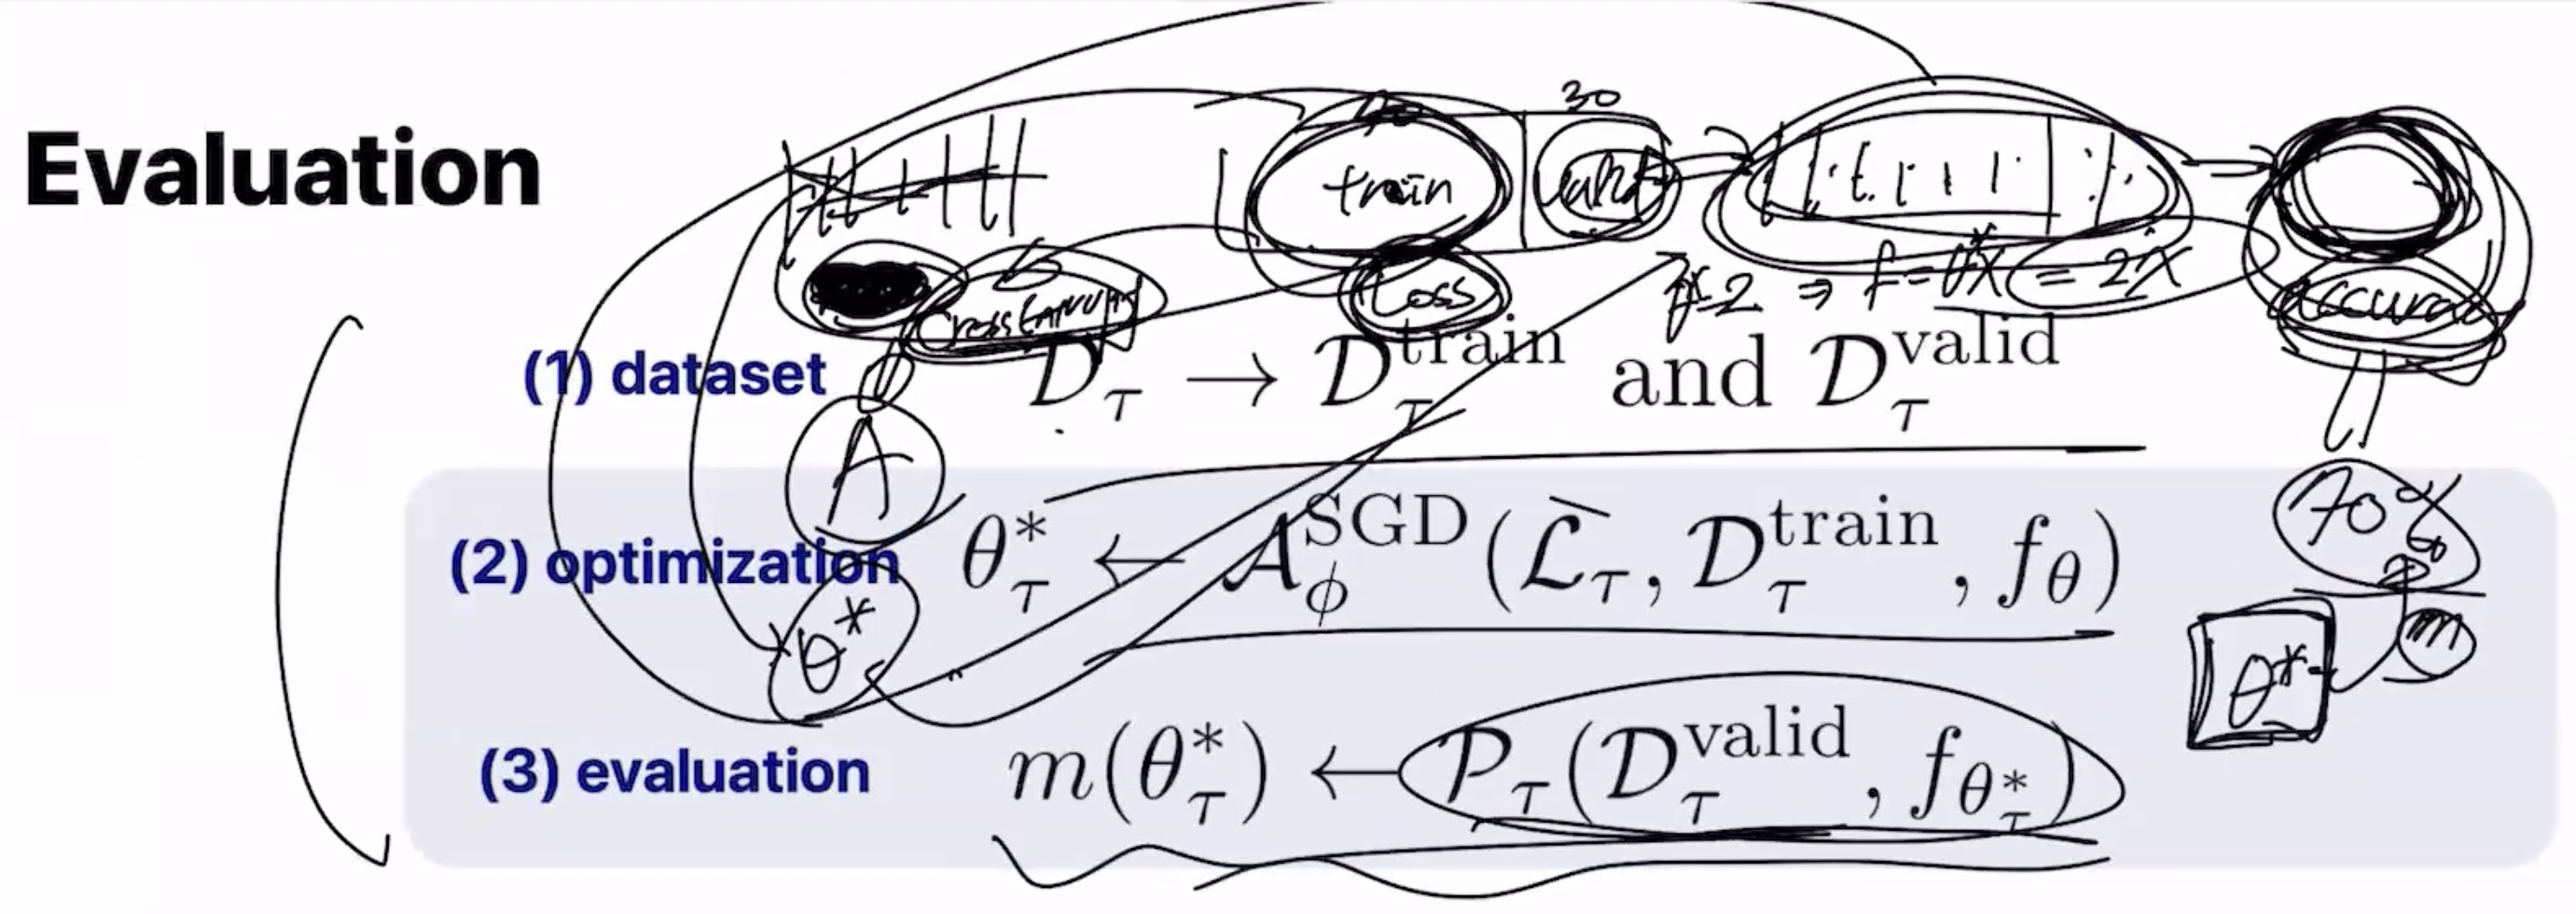 30
Evaluation
train
Loss
θ*=2 ⇒ f=θ*x = 2x
Cross Entropy
accuracy
(1) dataset D_τ → D_τ^train and D_τ^valid
A
70%
(2) optimization θ_τ^* ← A_ϕ^SGD(L_τ, D_τ^train, f_θ)
θ*
m
θ*
(3) evaluation m(θ_τ^*) ← P_τ(D_τ^valid, f_θ_τ^*)